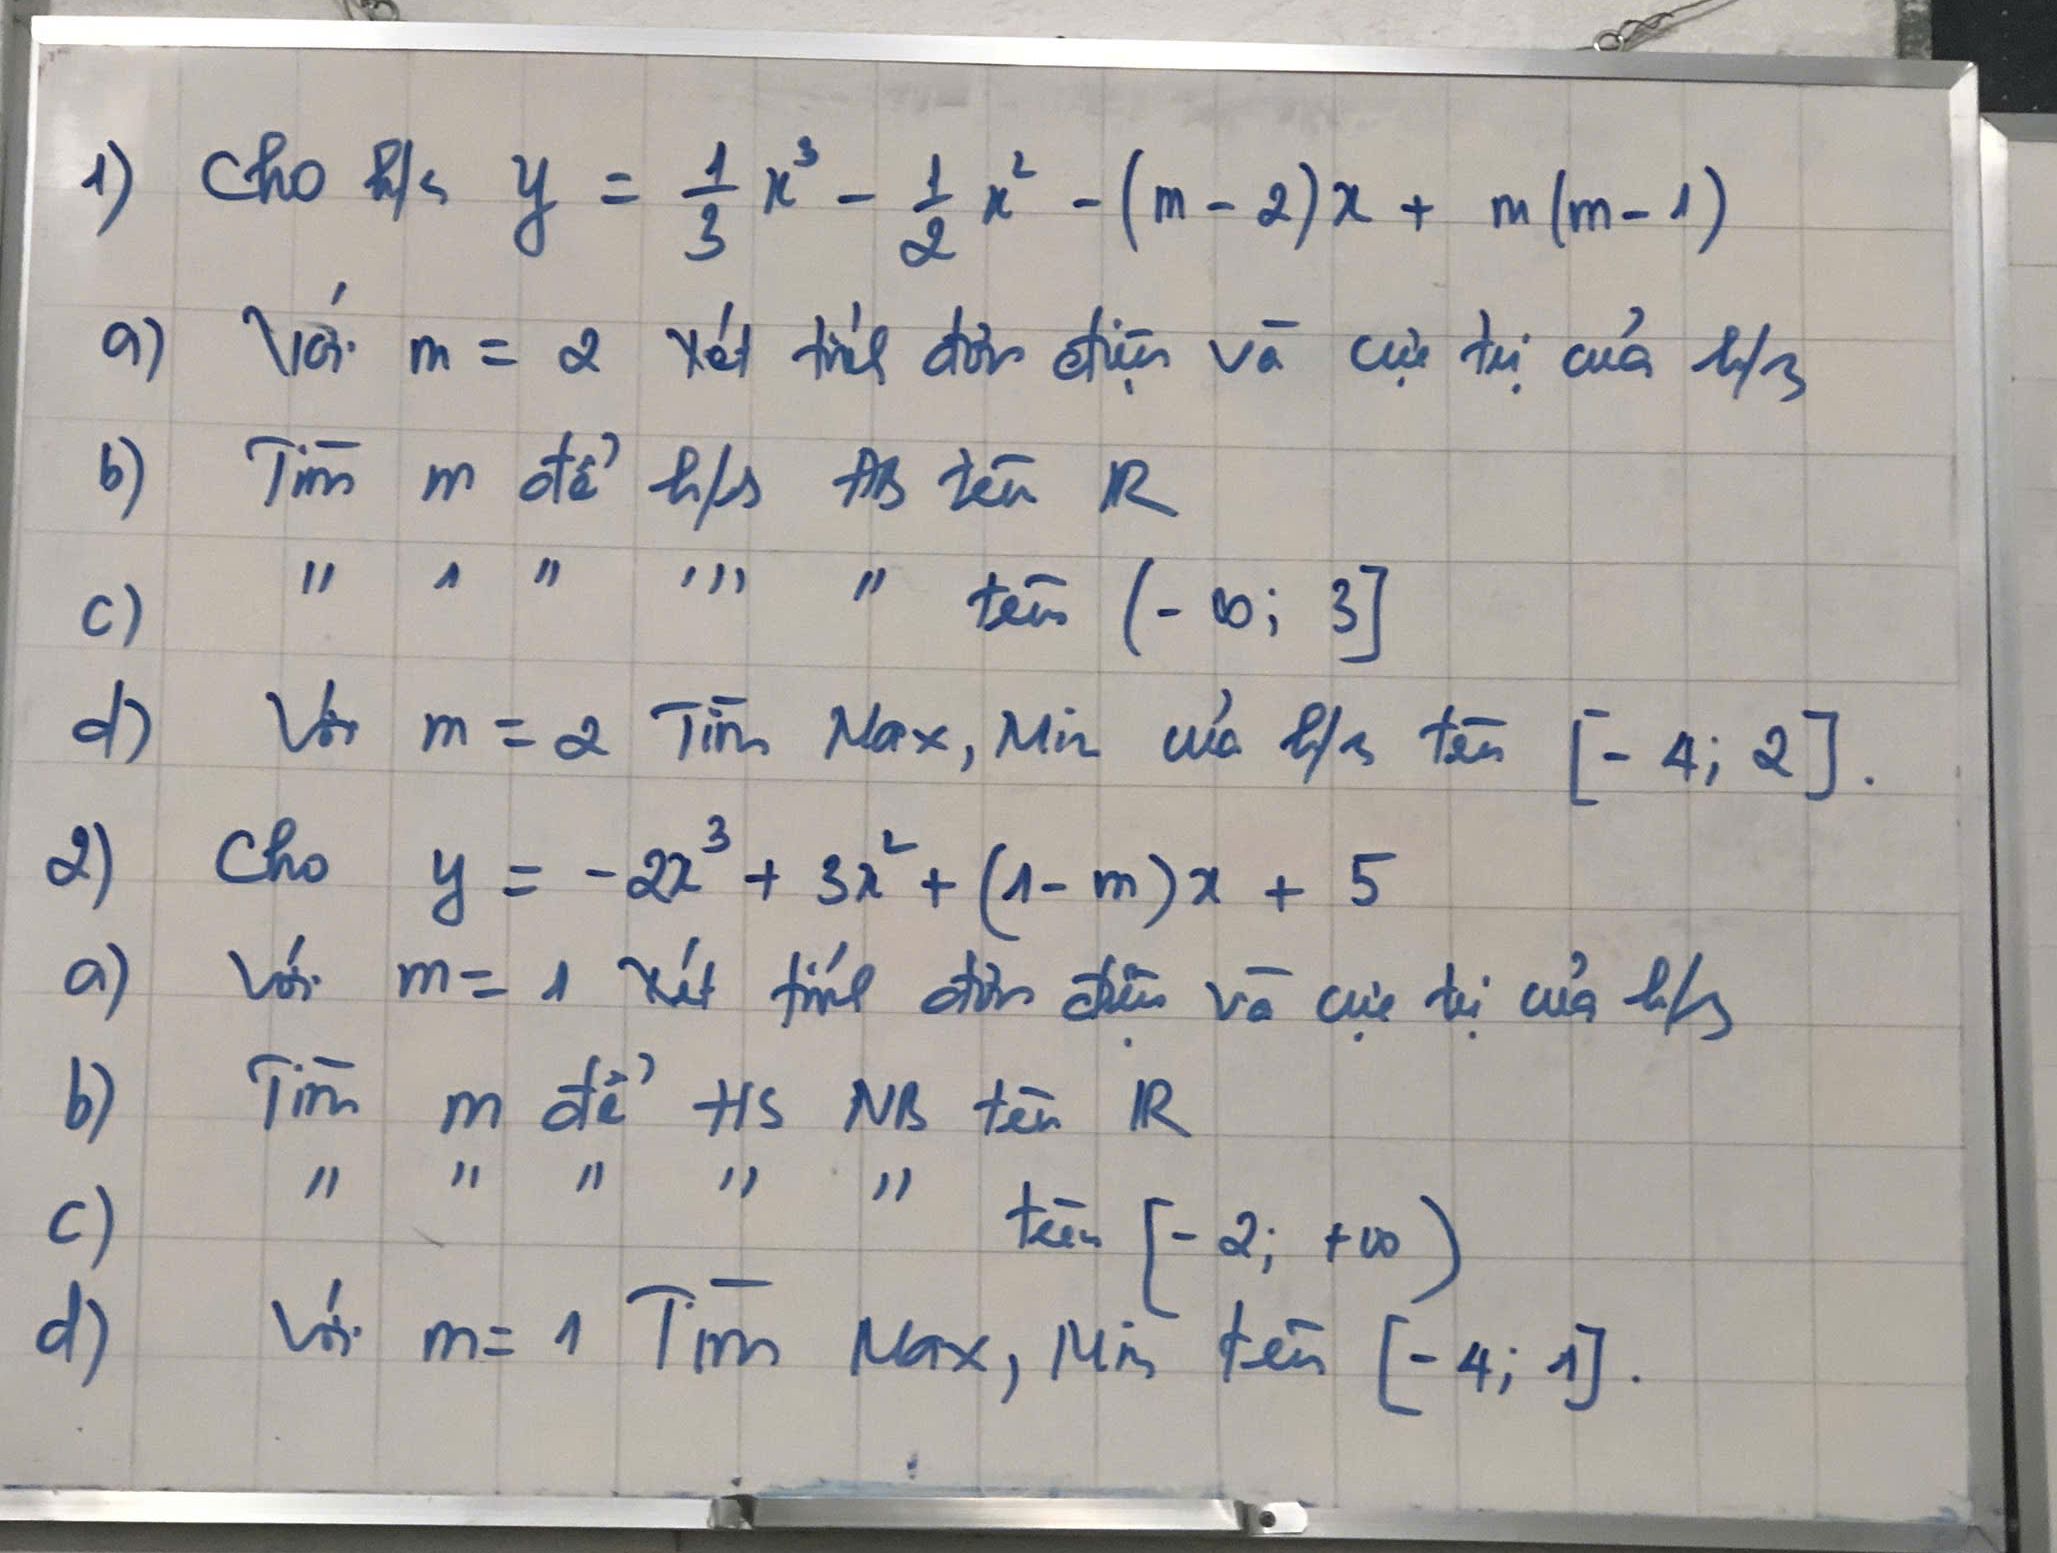 1) Cho h/s y = 1/3 x³ - 1/2 x² - (m - 2)x + m(m - 1)
a) Với m = 2 xét tính đơn điệu và cực trị của h/s
b) Tìm m để h/s ĐB trên R
c) " " " " " trên (-∞; 3]
d) Với m = 2 Tìm Max, Min của h/s trên [-4; 2].
2) Cho y = -2x³ + 3x² + (1 - m)x + 5
a) Với m = 1 xét tính đơn điệu và cực trị của h/s
b) Tìm m để HS NB trên R
c) " " " " " trên [-2; +∞)
d) Với m = 1 Tìm Max, Min trên [-4; 1].